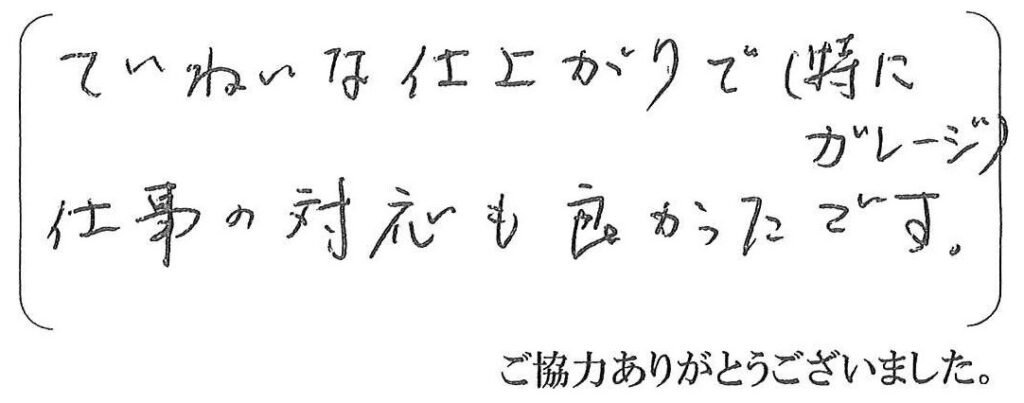 ていねいな仕上がりで(特に
ガレージ)
仕事の対応も良かったです。
ご協力ありがとうございました。